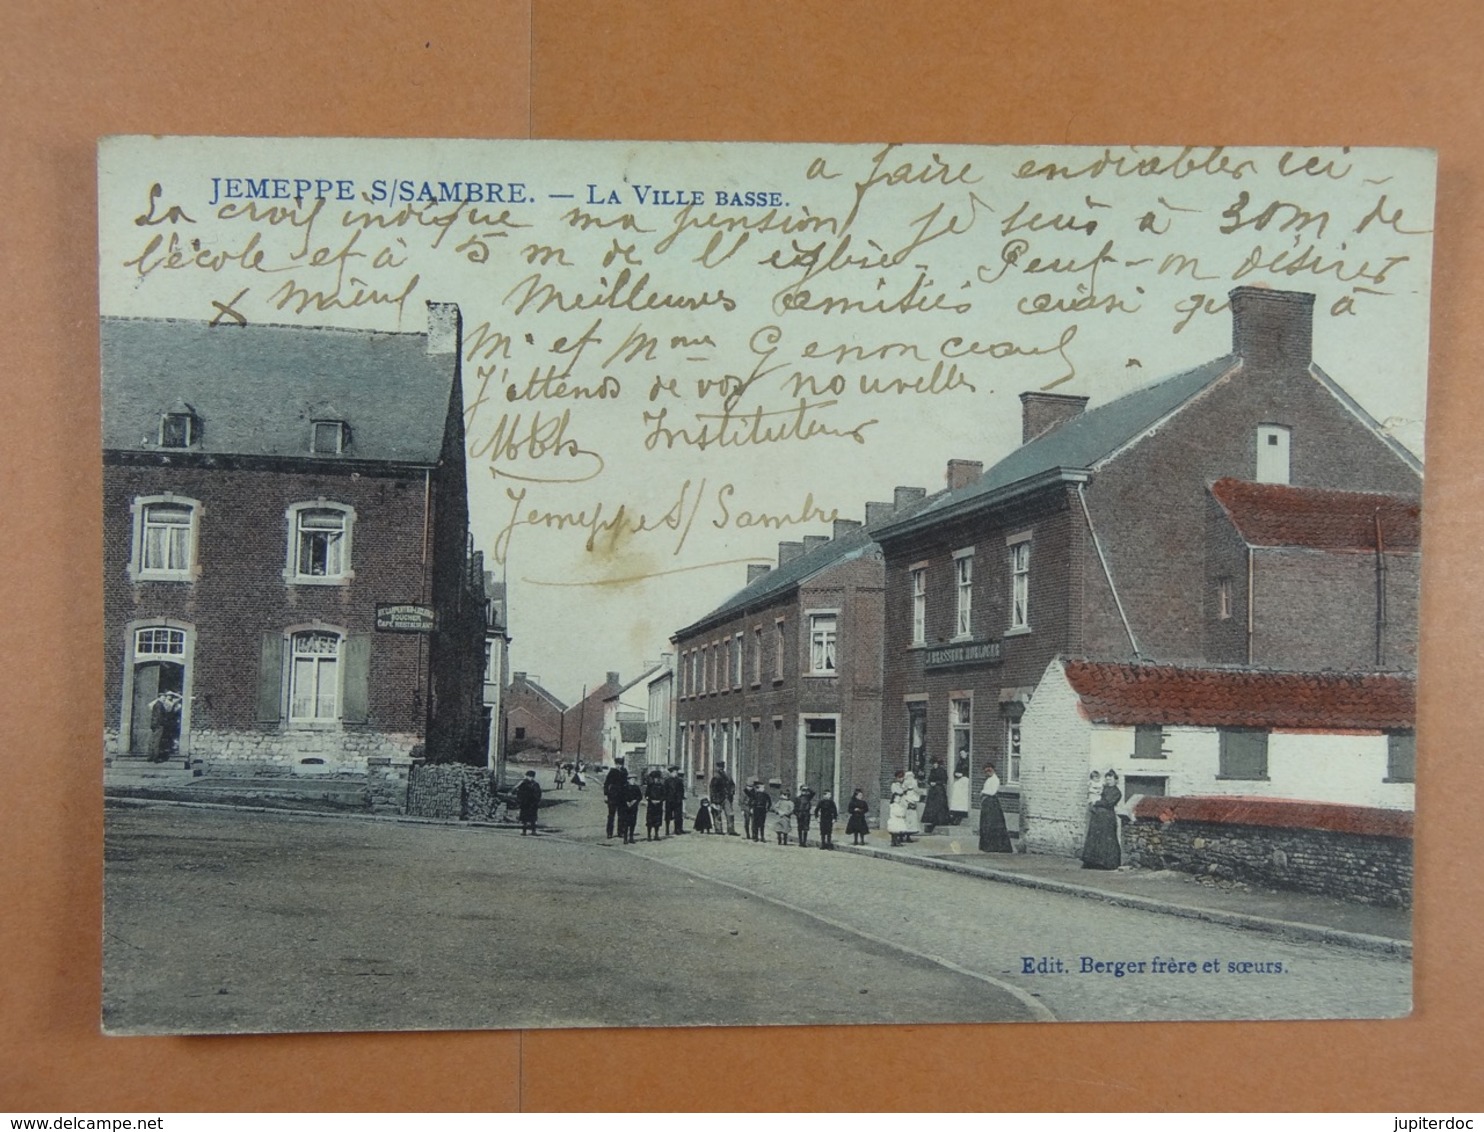 JEMEPPE S/SAMBRE. — LA VILLE BASSE.
a faire endiabler ici –
La croix indique ma pension, je suis à 30m de
l'école et à 5 m de l'église. Peut-on désirer
x mieux Meilleures amitiés ainsi qu' à
Mr et Mme Genonceaux
J'attends de vos nouvelles.
Instituteur
Jemeppe S/Sambre
BOUCHER
CAFÉ RESTAURANT
J. BRASSEUR HORLOGER
Edit. Berger frère et sœurs.
delcampe.net
jupiterdoc